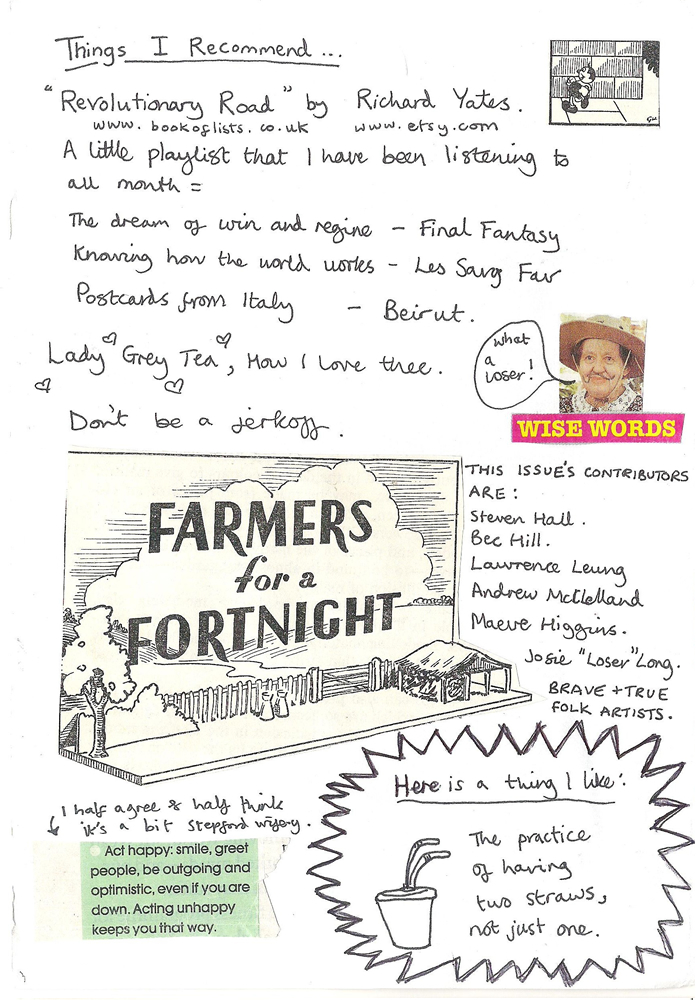 Things I Recommend...
"Revolutionary Road" by Richard Yates.
www.bookoflists.co.uk www.etsy.com
A little playlist that I have been listening to
all month =
The dream of win and regine - Final Fantasy
Knowing how the world works - Les Savy Fav
Postcards from Italy - Beirut.
Lady Grey Tea, How I love thee.
Don't be a jerkoff.
what
a
loser!
WISE WORDS
FARMERS
for a
FORTNIGHT
THIS ISSUE'S CONTRIBUTORS
ARE:
Steven Hall.
Bec Hill.
Lawrence Leung
Andrew McClelland
Maeve Higgins.
Josie "Loser" Long.
BRAVE + TRUE
FOLK ARTISTS.
I half agree & half think
it's a bit stepford wifery.
Act happy: smile, greet
people, be outgoing and
optimistic, even if you are
down. Acting unhappy
keeps you that way.
Here is a thing I like:
The practice
of having
two straws,
not just one.